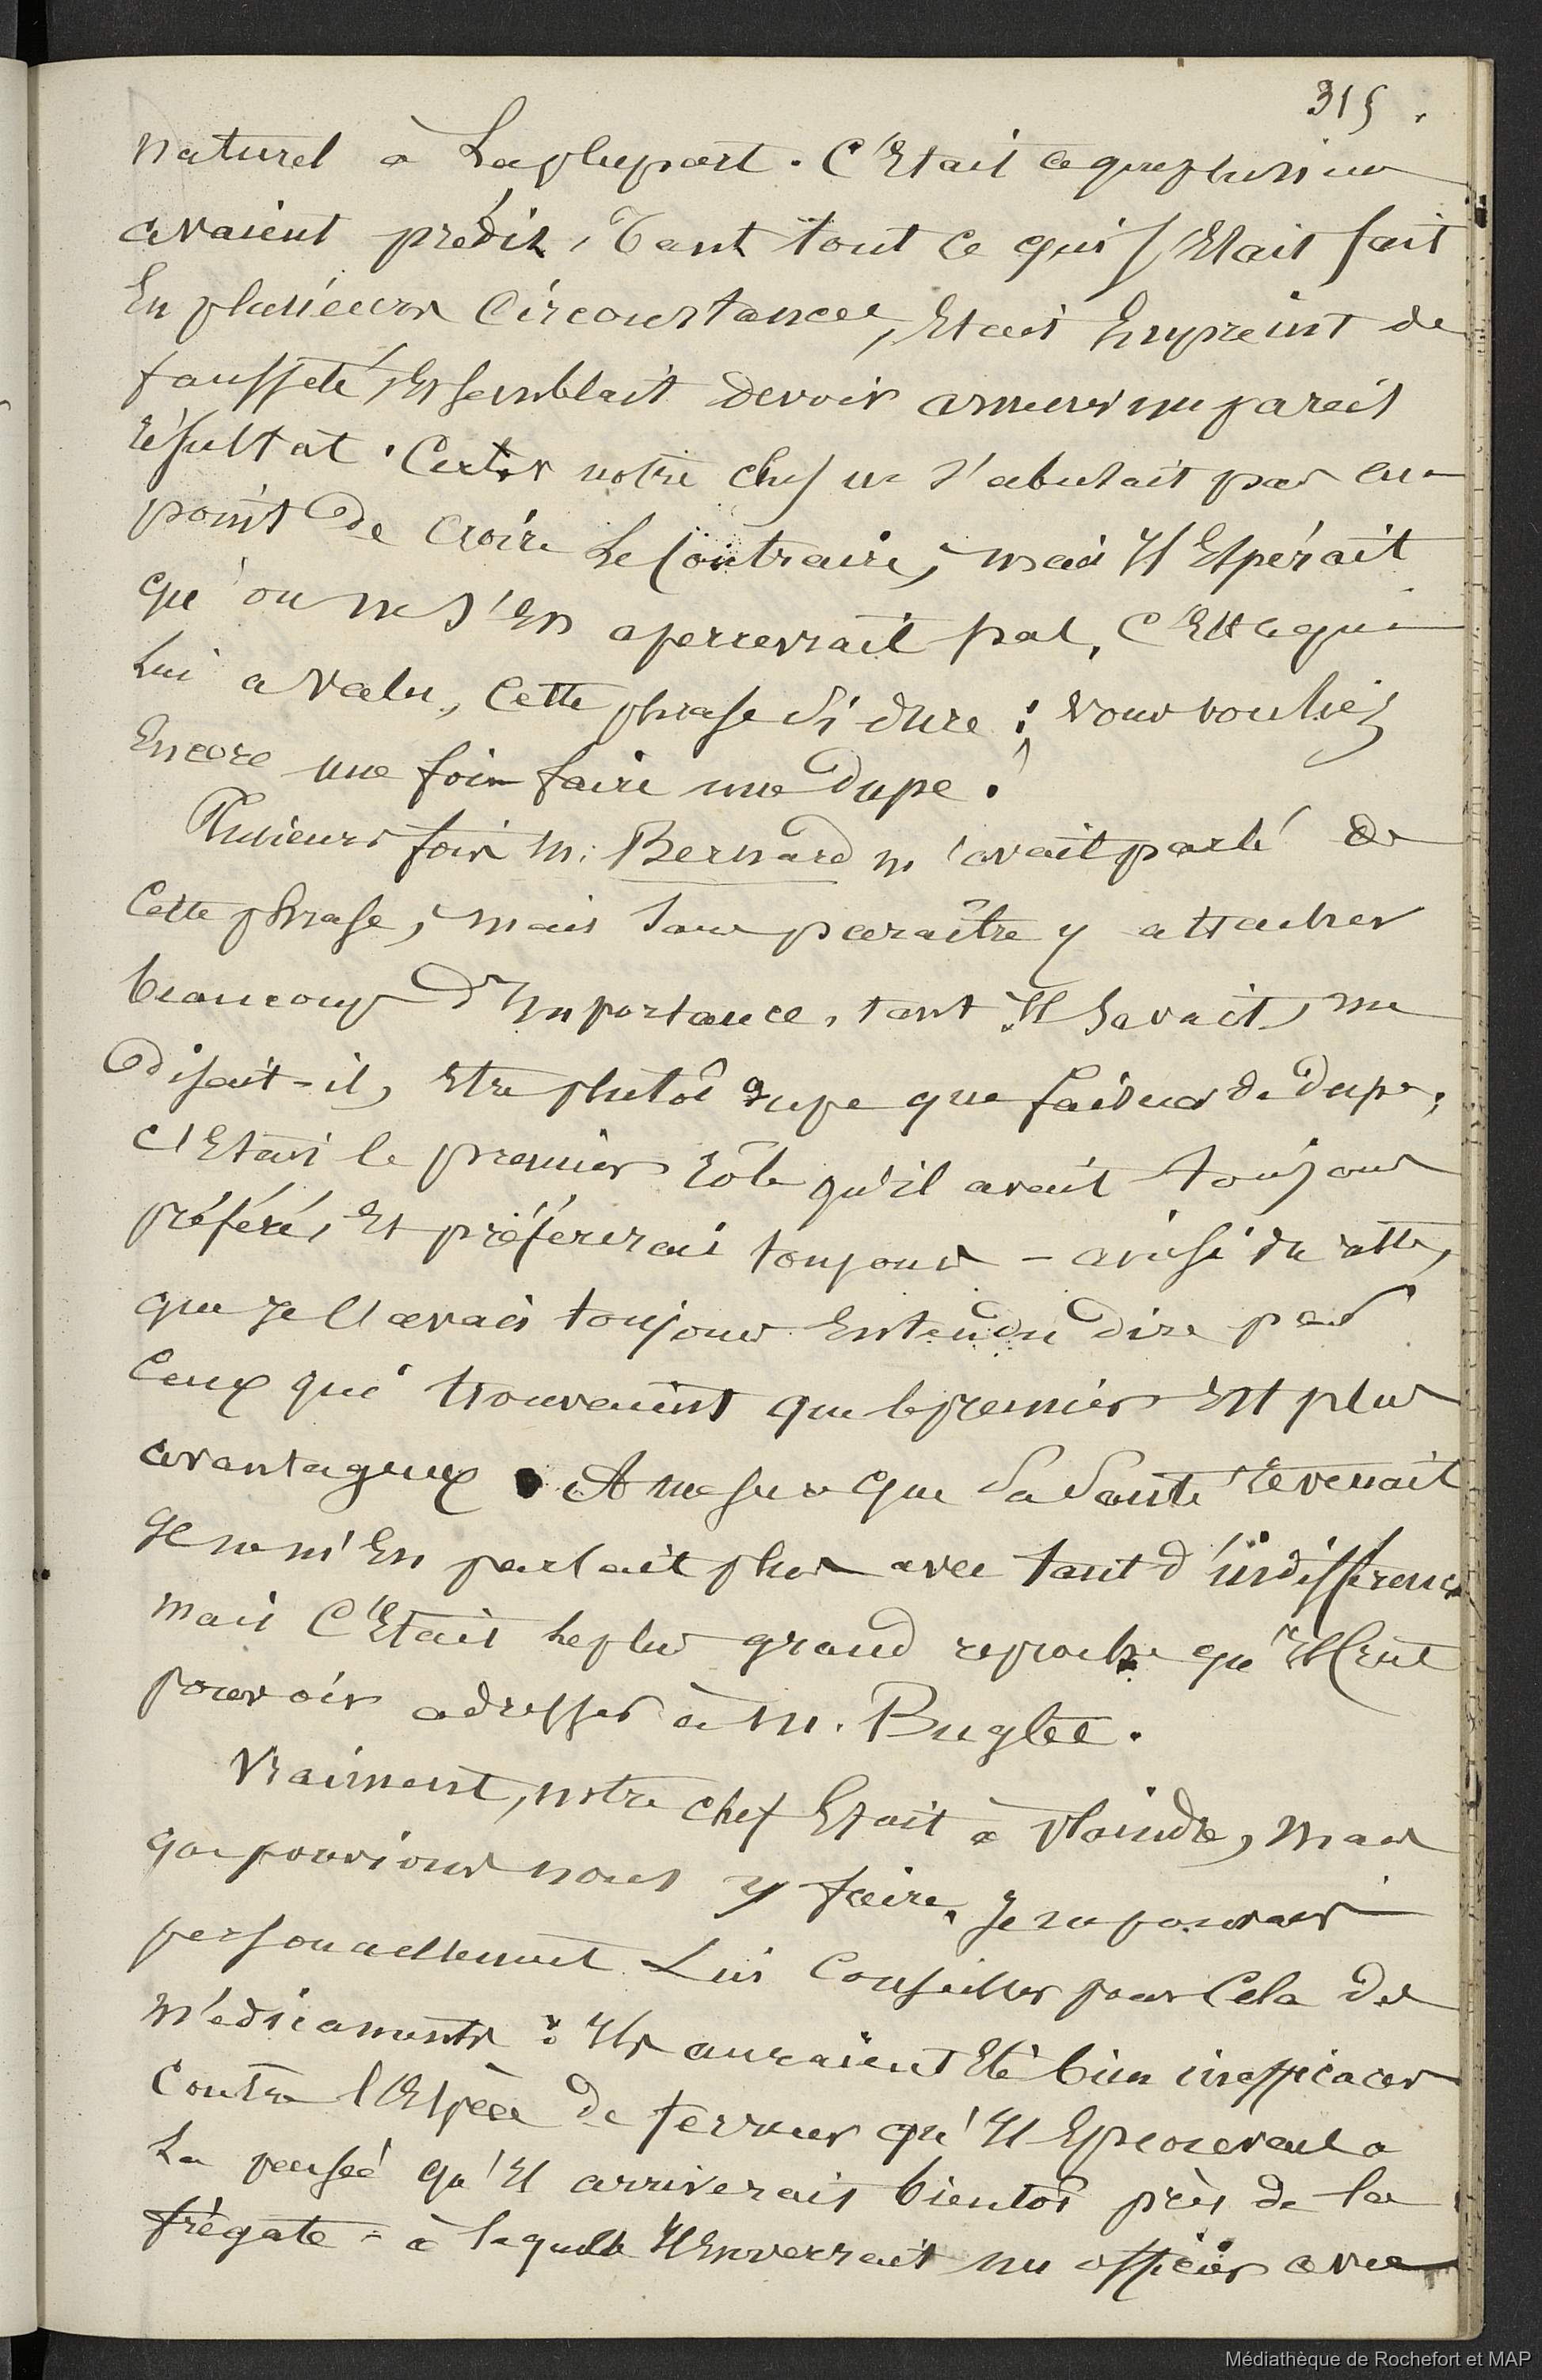 315.
naturel à La plupart. C'Etait ce que plusieurs
avaient prédit, Tant tout ce qui s'Etait fait
En plusieurs Circonstances, Etait Empreint de
fausseté, Et semblait devoir amener un pareil
résultat. Certes notre chef ne s'abusait pas au
point De croire Le Contraire, mais Il Espérait
qu'on ne s'En apercevrait pas, C'Est ce qui
Lui a valu, Cette phrase si dure : Vous vouliez
Encore une fois faire une Dupe.
Plusieurs fois M. Bernard m'avait parlé de
Cette phrase, mais sans paraître y attacher
beaucoup D'Importance, tant Il savait, me
Disait-il, Etre plutôt dupe que faiseur de Dupe,
C'Etait le premier rôle qu'il avait toujours
préféré, Et préférerait toujours -
que Je l'avais toujours Entendu Dire par
Ceux qui trouvaient que le premier Est plus
avantageux. A mesure que Sa Santé revenait
Il ne m'En parlait plus avec tant d'indifférence
mais C'Etait le plus grand reproche qu'Il Crut
pouvoir adresser à M. Buglet.
Vraiment, notre chef Etait à Plaindre, mais
que pouvions nous y faire. Je ne pouvais
personnellement Lui Conseiller pour Cela des
Médicaments : Ils auraient Eté bien inefficaces
Contre l'Espèce De terreur qu'Il Eprouvait a
La pensée qu'Il arriverait bientôt près de la
frégate - à laquelle Il Enverrait un officier avec
Médiathèque de Rochefort et MAP